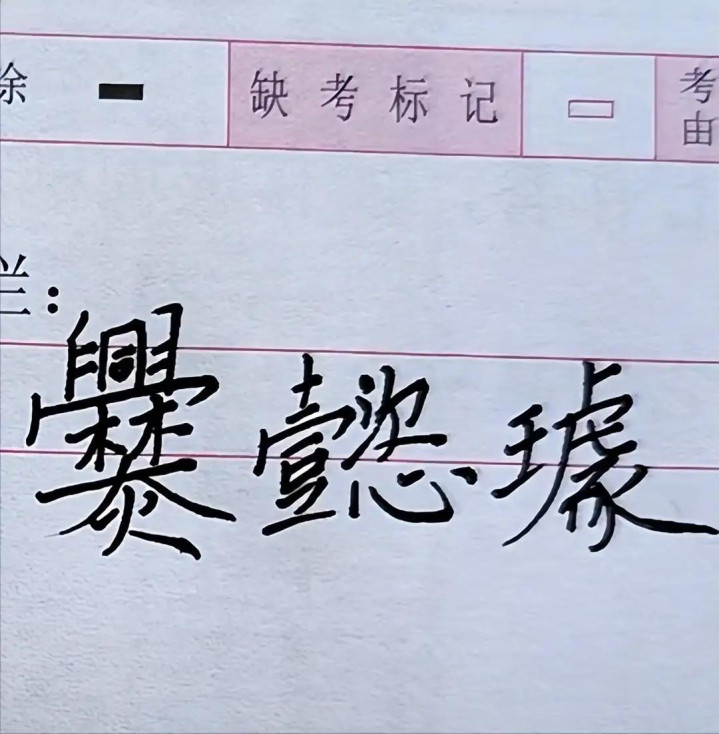 涂 缺考标记 考
由
栏：
爨懿璩